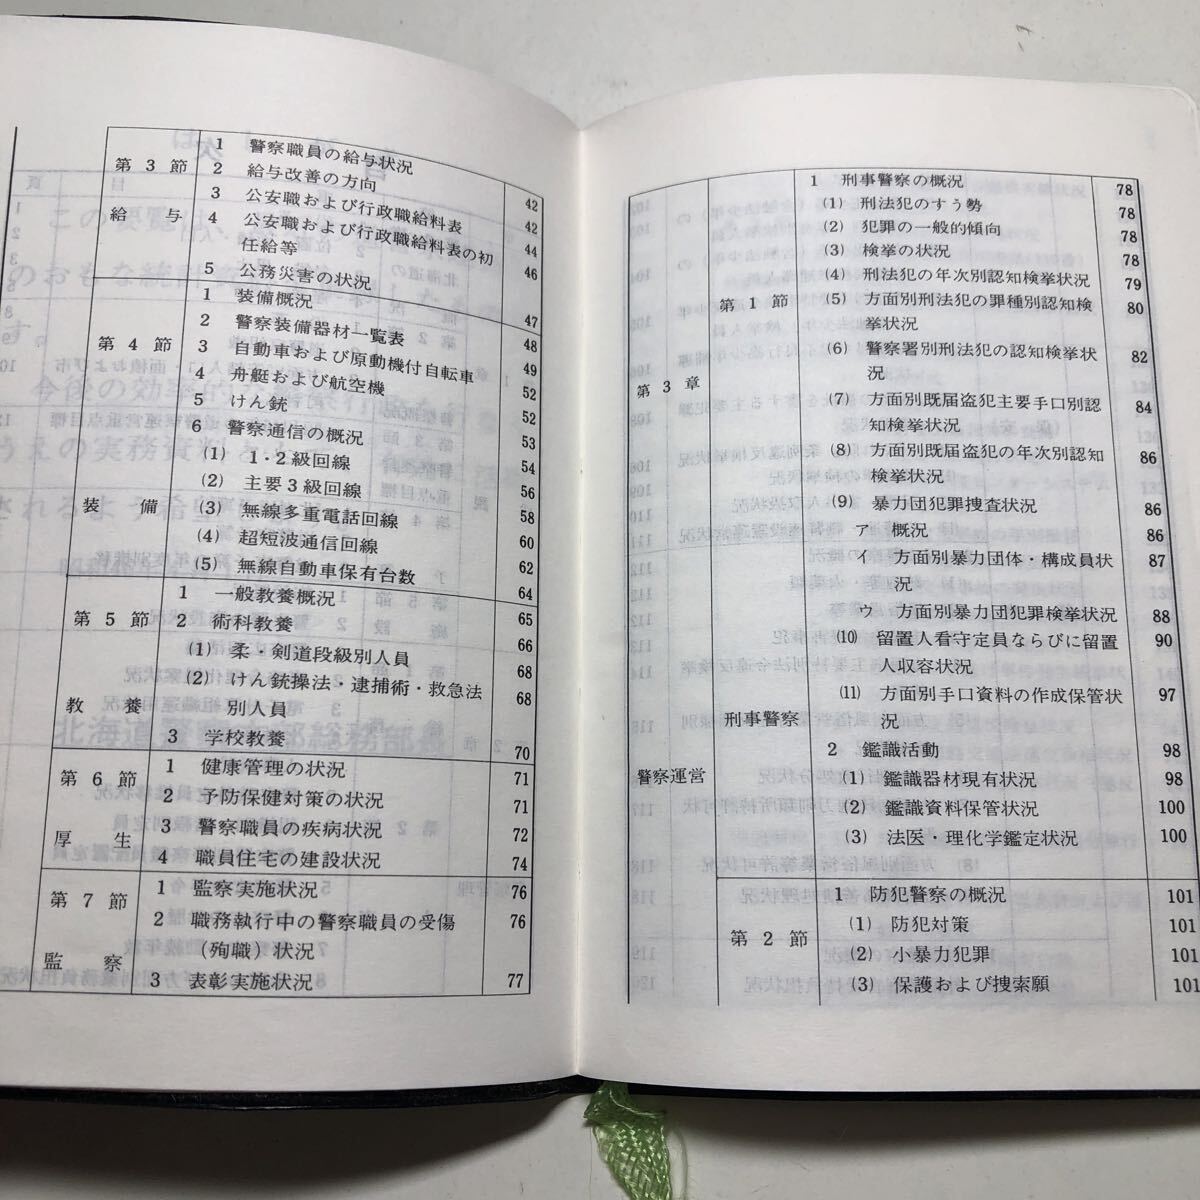 第3節
給与
1 警察職員の給与状況
2 給与改善の方向 42
3 公安職および行政職給料表 42
4 公安職および行政職給料表の初 44
任給等
5 公務災害の状況 46
第4節
装備
1 装備概況 47
2 警察装備器材一覧表 48
3 自動車および原動機付自転車 49
4 舟艇および航空機 52
5 けん銃 52
6 警察通信の概況 53
(1) 1・2級回線 54
(2) 主要3級回線 56
(3) 無線多重電話回線 58
(4) 超短波通信回線 60
(5) 無線自動車保有台数 62
第5節
教養
1 一般教養概況 64
2 術科教養 65
(1) 柔・剣道段級別人員 66
(2) けん銃操法・逮捕術・救急法 68
別人員 68
3 学校教養 70
第6節
厚生
1 健康管理の状況 71
2 予防保健対策の状況 71
3 警察職員の疾病状況 72
4 職員住宅の建設状況 74
第7節
監察
1 監察実施状況 76
2 職務執行中の警察職員の受傷 76
(殉職)状況
3 表彰実施状況 77
第3章
警察運営
第1節
刑事警察
1 刑事警察の概況 78
(1) 刑法犯のすう勢 78
(2) 犯罪の一般的傾向 78
(3) 検挙の状況 78
(4) 刑法犯の年次別認知検挙状況 79
(5) 方面別刑法犯の罪種別認知検 80
挙状況
(6) 警察署別刑法犯の認知検挙状 82
況
(7) 方面別既届盗犯主要手口別認 84
知検挙状況
(8) 方面別既届盗犯の年次別認知 86
検挙状況
(9) 暴力団犯罪捜査状況 86
ア 概況 86
イ 方面別暴力団体・構成員状 87
況
ウ 方面別暴力団犯罪検挙状況 88
(10) 留置人看守定員ならびに留置 90
人収容状況
(11) 方面別手口資料の作成保管状 97
況
2 鑑識活動 98
(1) 鑑識器材現有状況 98
(2) 鑑識資料保管状況 100
(3) 法医・理化学鑑定状況 100
第2節
1 防犯警察の概況 101
(1) 防犯対策 101
(2) 小暴力犯罪 101
(3) 保護および捜索願 101